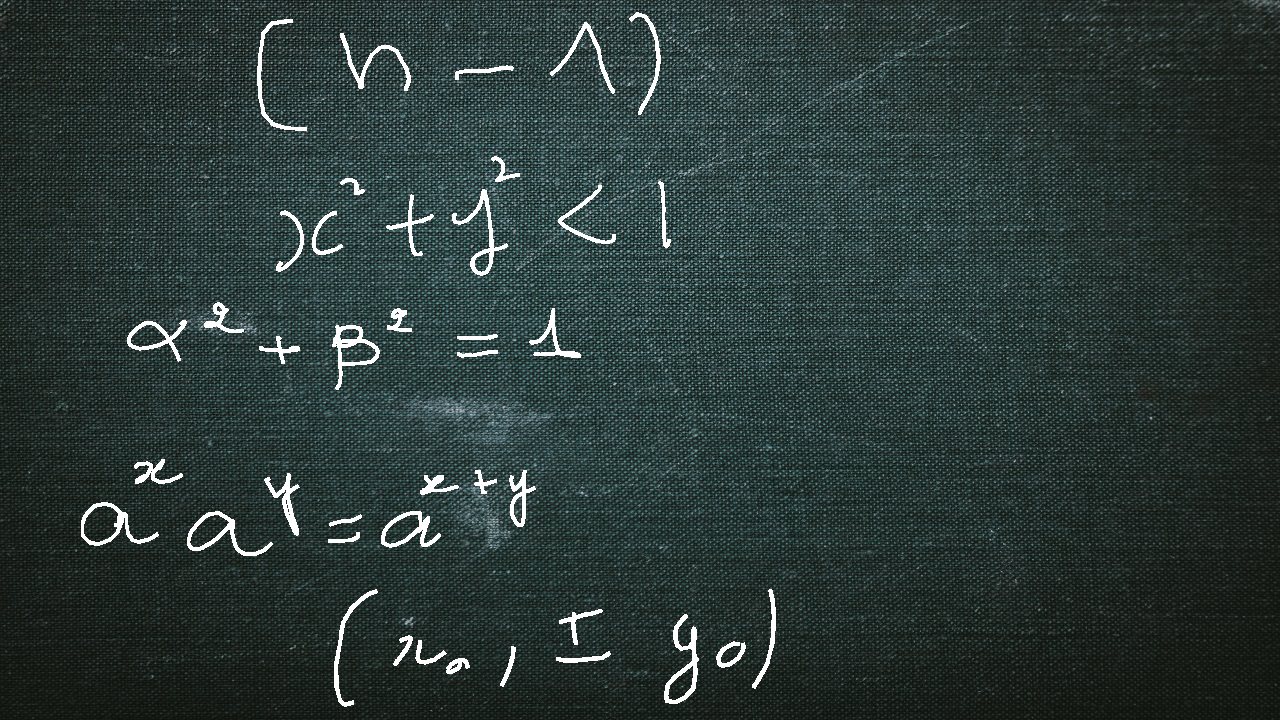 (n - 1)
x² + y² < 1
α² + β² = 1
aˣ aʸ = aˣ⁺ʸ
(x₀, ± y₀)